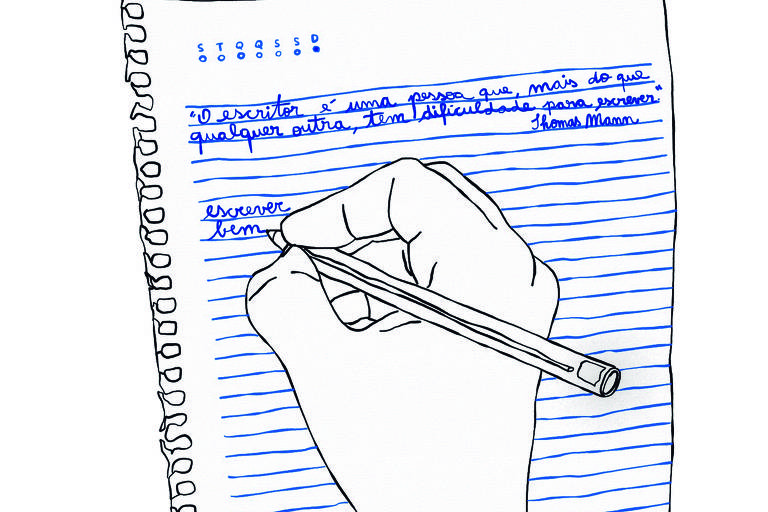 S T Q Q S S D
"O escritor é uma pessoa que, mais do que
qualquer outra, tem dificuldade para escrever"
Thomas Mann
escrever
bem